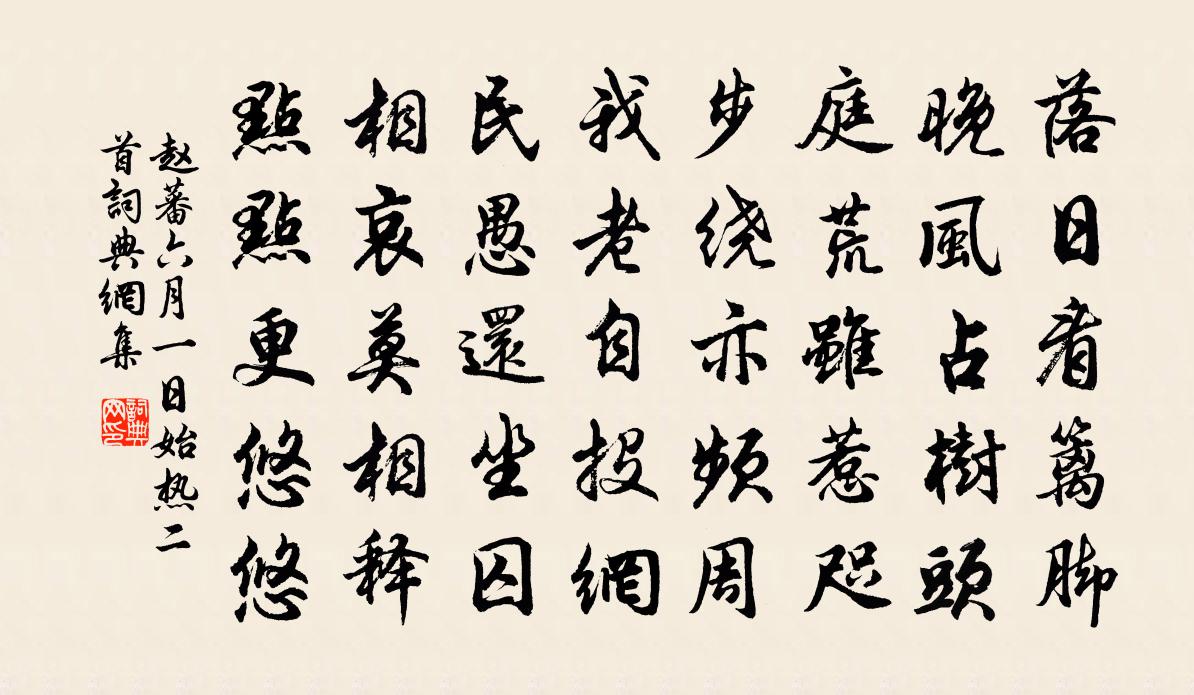 落日看篱脚
晚風占樹頭
庭荒雖惹咫
步绕亦频周
我老自投網
民愚還坐囚
相哀莫相释
點點更悠悠
赵蕃六月一日始热二
首詞典網集
詞典
网印